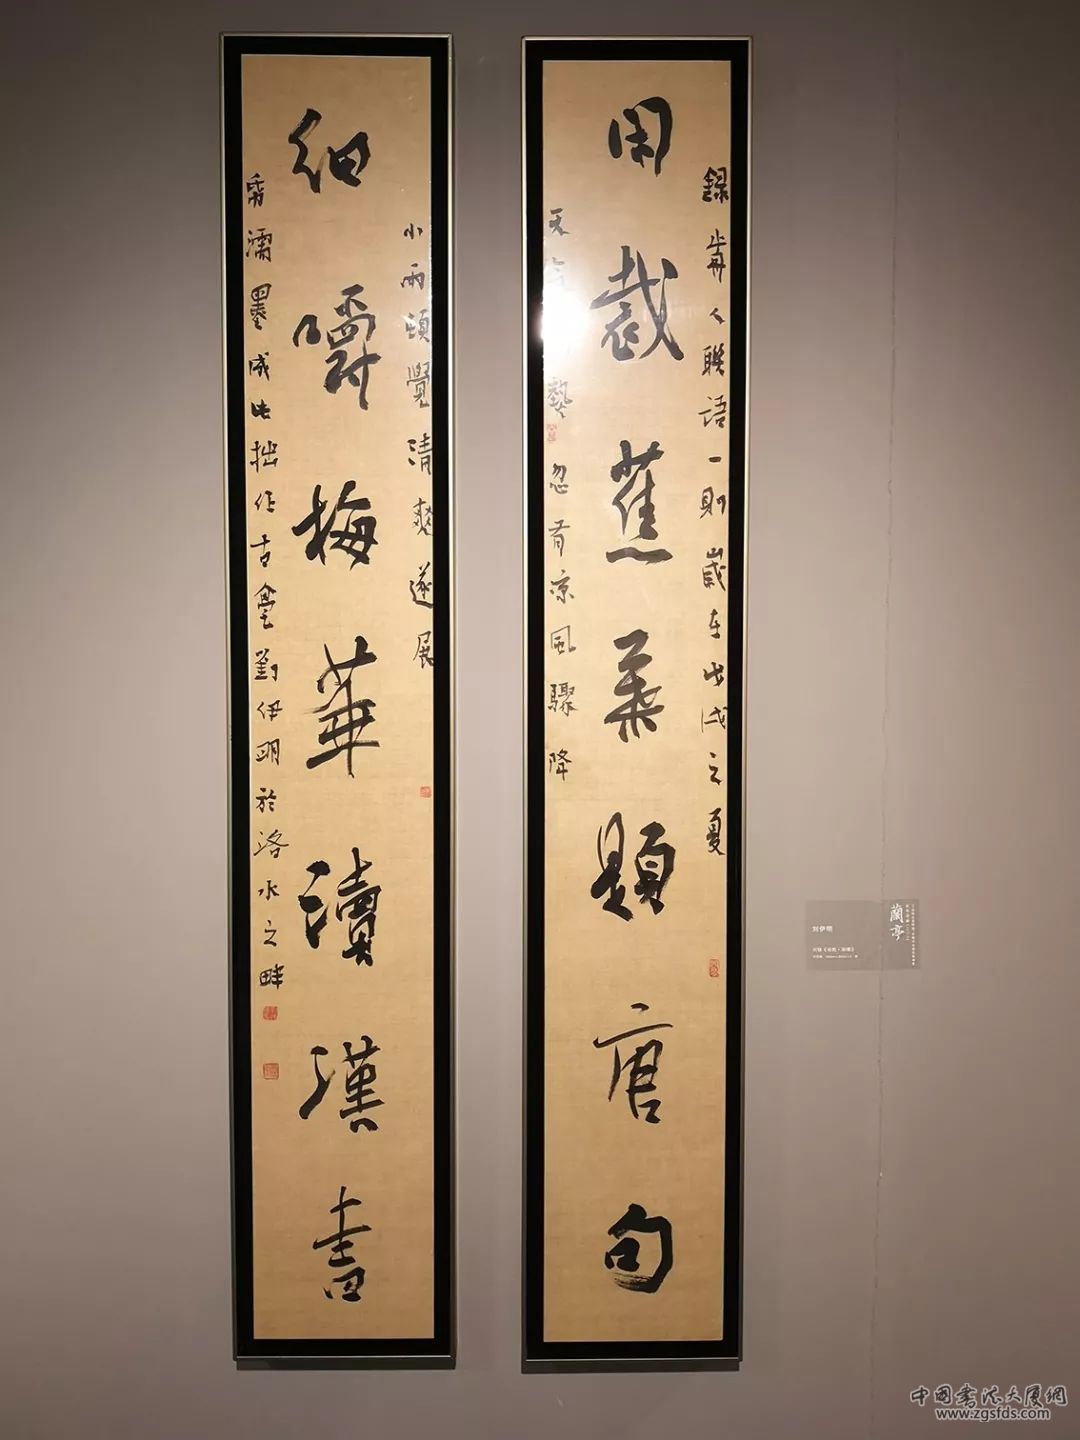 閑裁蕉葉題唐句
錄前人聯語一則歲在戊戌之夏
天 熱忽有涼風驟降
細嚼梅華讀漢書
小雨頓覺清爽遂展
帋濡墨成此拙作古亳劉伊明於洛水之畔
刘伊明
蘭亭
中国书法大厦網
www.zgsfds.com